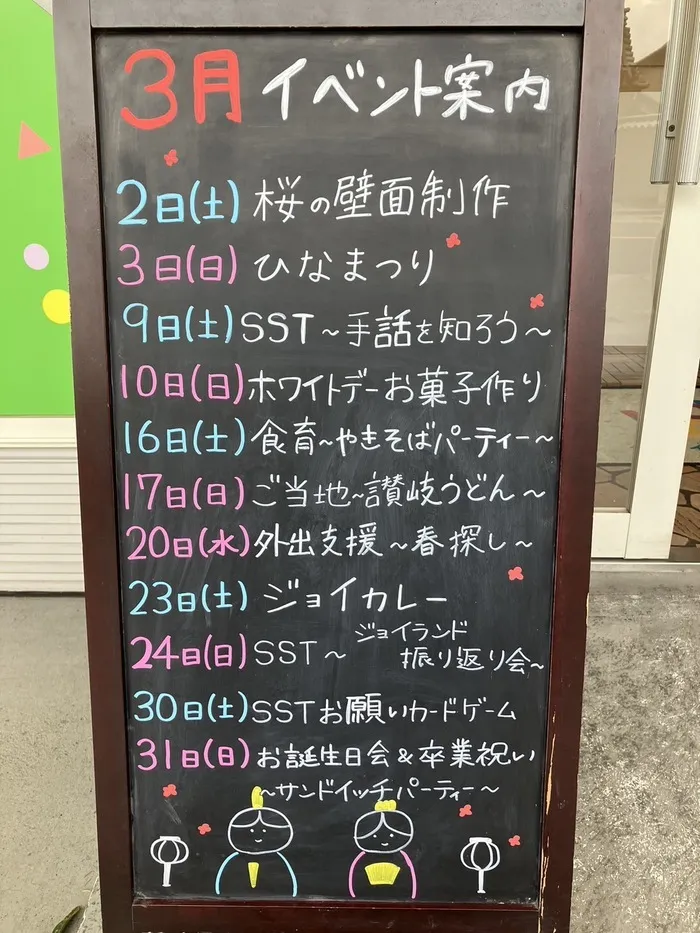 3月 イベント案内
2日(土) 桜の壁面制作
3日(日) ひなまつり
9日(土) SST～手話を知ろう～
10日(日) ホワイトデーお菓子作り
16日(土) 食育～やきそばパーティー～
17日(日) ご当地～讃岐うどん～
20日(水) 外出支援～春探し～
23日(土) ジョイカレー
24日(日) SST～ジョイランド
振り返り会～
30日(土) SSTお願いカードゲーム
31日(日) お誕生日会&卒業祝い
～サンドイッチパーティー～